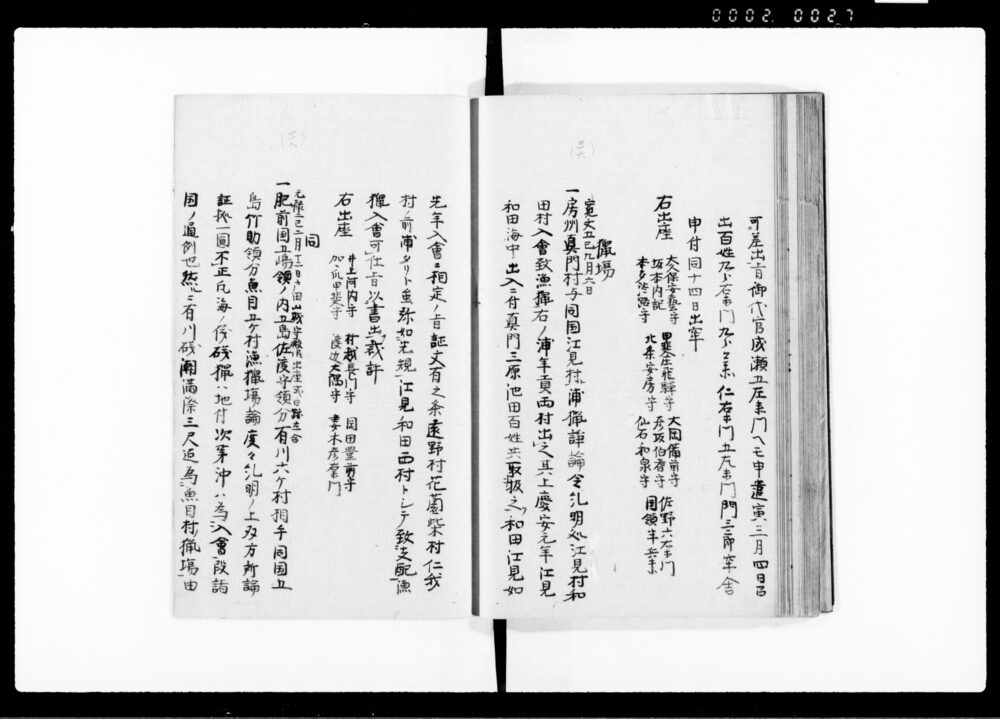 0002 0027
可差出旨御代官成瀬五左衛門ヘモ申遣寅三月四日召
出百姓九郎右衛門九郎兵衛仁右衛門五左衛門門三郎牢舎
申付同十四日出牢
右出座
大久保安藝守 甲斐庄飛騨守 大岡備前守 佐野六右衛門
坂本内記 北条安房守 彦坂伯耆守 国領半兵衛
本多淡路守 仙石和泉守
獵場
寛文五巳九月六日
一房州真門村与同国江見村浦獵諍論令糺明処江見村和
田村入會致漁獵右ノ浦年貢両村出之其上慶安元年江見
和田海中出入ニ付真門三原池田百姓共取扱之和田江見如
先年入會ニ相定ノ旨証文有之条遠野村花薗柴村仁我
村ノ前浦タリト虽弥如先規江見和田両村トシテ致支配漁
獵入會可仕旨以書出裁許
右出座
井上河内守 村越長門守 岡田豊前守
加〻爪甲斐守 渡辺大隅守 妻木彦右衛門
同
元禄二巳二月十二日戸田山城守殿御出座式日評定合
一肥前国五嶋領ノ内五島佐渡守領分有川六ケ村相手同国五
島竹助領分魚目五ケ村漁獵場論度々糺明ノ上双方所論
証拠一圓不正凡海ノ儀磯獵ハ地付次第沖ハ為入會段諸
国ノ通例也然ルニ有川磯潮満際三尺迄為魚目村獵場由